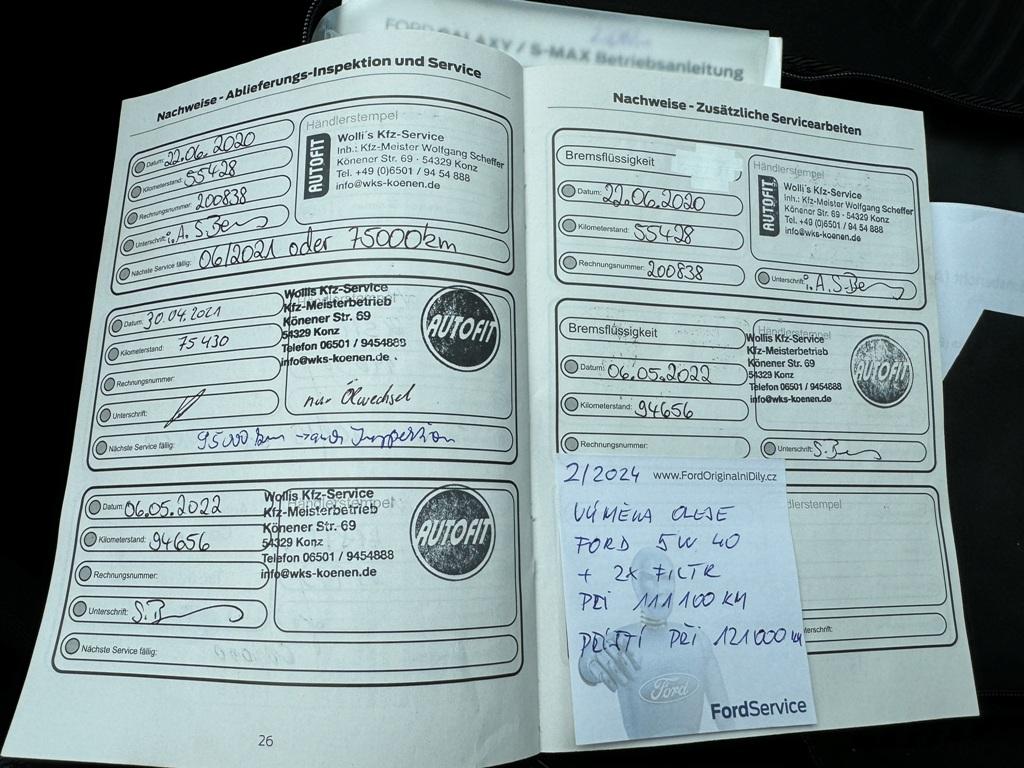 FORD GALAXY / S-MAX Betriebsanleitung
Nachweise - Ablieferungs-Inspektion und Service
Datum: 22.06.2020
Kilometerstand: 55428
Rechnungsnummer: 200838
Unterschrift: i.A. S.Be
Nächste Service fällig: 06/2021 oder 75000km
Händlerstempel
AUTOFIT
Wolli's Kfz-Service
Inh.: Kfz-Meister Wolfgang Scheffer
Könener Str. 69 · 54329 Konz
Tel. +49 (0)6501 / 94 54 888
info@wks-koenen.de
Datum: 30.04.2021
Kilometerstand: 75430
Rechnungsnummer:
Unterschrift:
Nächste Service fällig: 95000 km → auch Inspektion
Händlerstempel
Wollis Kfz-Service
Kfz-Meisterbetrieb
Könener Str. 69
54329 Konz
Telefon 06501 / 9454888
info@wks-koenen.de
AUTOFIT
nur Ölwechsel
Datum: 06.05.2022
Kilometerstand: 94656
Rechnungsnummer:
Unterschrift: S.B
Nächste Service fällig:
Händlerstempel
Wollis Kfz-Service
Kfz-Meisterbetrieb
Könener Str. 69
54329 Konz
Telefon 06501 / 9454888
info@wks-koenen.de
AUTOFIT
26
Nachweise - Zusätzliche Servicearbeiten
Bremsflüssigkeit
Datum: 22.06.2020
Kilometerstand: 55428
Rechnungsnummer: 200838
Händlerstempel
AUTOFIT
Wolli's Kfz-Service
Inh.: Kfz-Meister Wolfgang Scheffer
Könener Str. 69 - 54329 Konz
Tel. +49 (0)6501 / 94 54 888
info@wks-koenen.de
Unterschrift: i.A. S.Be
Bremsflüssigkeit
Datum: 06.05.2022
Kilometerstand: 94656
Rechnungsnummer:
Händlerstempel
Wollis Kfz-Service
Kfz-Meisterbetrieb
Könener Str. 69
54329 Konz
Telefon 06501 / 9454888
info@wks-koenen.de
AUTOFIT
Unterschrift: S.Be
dlerstempel
terschrift:
2/2024 www.FordOriginalniDily.cz
VÝMĚNA OLEJE
FORD 5W40
+ 2x FILTR
PŘI 111 100 KM
PŘÍŠTÍ PŘI 121000 KM
Ford
FordService